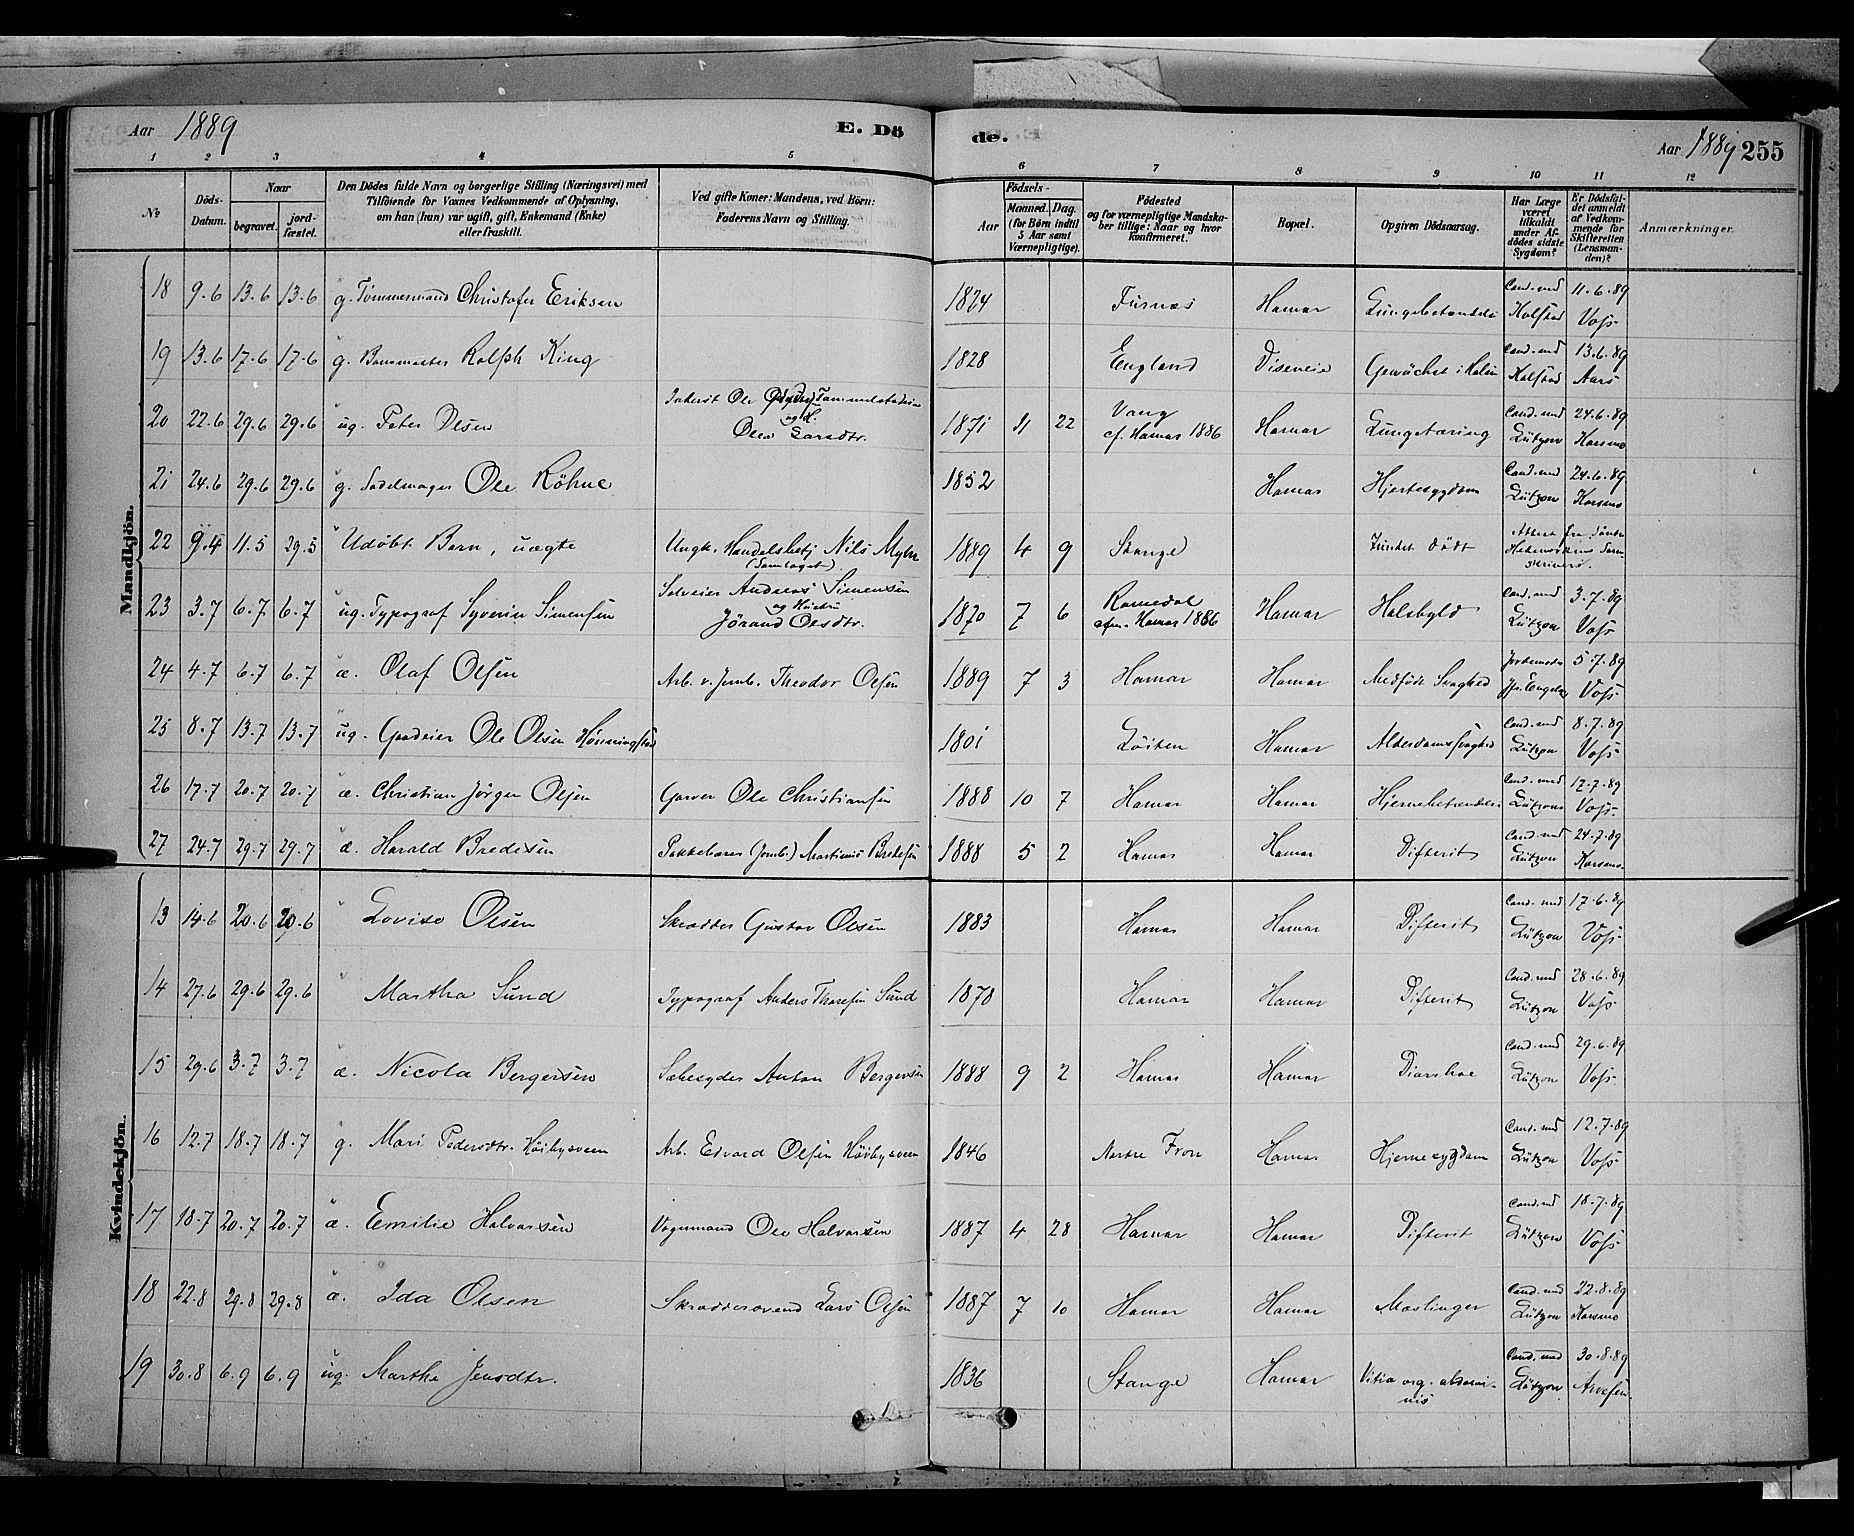 Aar 1889 E. Dö de. Aar 1889 255
1 2 3 4 5 6 7 8 9 10 11 12
No. Döds-Datum. Naar begravet. jordfæstet. Den Dödes fulde Navn og borgerlige Stilling (Næringsvei) med Tilföiende for Voxnes Vedkommende af Oplysning, om han (hun) var ugift, gift, Enkemand (Enke) eller fraskilt. Ved gifte Koner: Mandens, ved Börn: Faderens Navn og Stilling. Födsels- Aar Maaned. Dag. (for Börn indtil 5 Aar samt Værnepligtige). Födested og for værnepligtige Mandskaber tillige: Naar og hvor konfirmeret. Bopæl. Opgiven Dödsaarsag. Har Læge været tilkaldt under Afdödes sidste Sygdom? Er Dödsfaldet anmeldt af Vedkommende for Skifteretten (Lensmanden)? Anmærkninger.
Mandkjön.
18 9.6 13.6 13.6 g. Tömmermand Christofer Eriksen 1824 Furnæs Hamar Lungebetændelse Cand. med Kolstad 11.6.89 Voss
19 13.6 17.6 17.6 g. Banemester Ralph King 1828 England Disenveie Gewächst i Cand. med Kolstad 13.6.89 Aars
20 22.6 29.6 29.6 ug. Peter Olsen Ole og H. Olea Larsdtr. 1871 11 22 Vang cf. Hamar 1886 Hamar Lungetæring Cand. med Lützow 24.6.89 Karsmo
21 24.6 29.6 29.6 g. Sadelmager Ole Röhne 1852 Hamar Hjertesygdom Cand. med Lützow 24.6.89 Karsmo
22 9.4 11.5 29.5 Udöbt Barn, uægte Ungk. Handelsbetj Nils Myhr 1889 4 9 Stange Fundet dödt Attest fra Söndre Hedemarkens Sorenskriveri.
23 3.7 6.7 6.7 ug. Typograf Syverin Simensen Selveier Andreas Simensen og Hustru Jörand Olsdtr. 1870 7 6 Romedal cfm. Hamar 1886 Hamar Halsbyld Cand. med Lützow 3.7.89 Voss
24 4.7 6.7 6.7 æ. Olaf Olsen Arb. v. Jernb. Theodor Olsen 1889 7 3 Hamar Hamar Medfödt Svaghed Jordemoder 5.7.89 Voss
25 8.7 13.7 13.7 ug. Gaardeier Ole Olsen Hönningstad 1801 Löiten Hamar Alderdomssvaghed Cand. med Lützow 8.7.89 Voss
26 17.7 20.7 20.7 æ. Christian Jörgen Olsen Garver Ole Christiansen 1888 10 7 Hamar Hamar Hjernebetændelse Cand. med Lützow 17.7.89 Voss
27 24.7 29.7 29.7 æ. Harald Bredesen Pakkebærer (Jernb.) Martinius Bredesen 1888 5 2 Hamar Hamar Difterit Cand. med Lützow 24.7.89 Karsmo
Kvindekjön.
13 14.6 20.6 20.6 Lovise Olsen Skrædder Gustav Olsen 1883 Hamar Hamar Difterit Cand. med Lützow 17.6.89 Voss
14 27.6 29.6 29.6 Martha Sund Typograf Anders Thoresen Sund 1878 Hamar Hamar Difterit Cand. med Lützow 28.6.89 Voss
15 29.6 3.7 3.7 æ. Nicola Bergersen Sæbesyder Anton Bergersen 1888 9 2 Hamar Hamar Diarrhoe Cand. med Lützow 29.6.89 Voss
16 12.7 18.7 18.7 g. Mari Pedersdtr. Höibysveen Arb. Edvard Olsen Höibysveen 1846 Nordre Fron Hamar Hjernesygdom Cand. med Lützow 12.7.89 Voss
17 18.7 20.7 20.7 æ. Emilie Halvorsen Vognmand Ole Halvorsen 1887 4 28 Hamar Hamar Difterit Cand. med Lützow 18.7.89 Voss
18 22.8 29.8 29.8 æ. Ida Olsen Skræddersvend Lars Olsen 1887 7 10 Hamar Hamar Mæslinger Cand. med Lützow 22.8.89 Karsmo
19 30.8 6.9 6.9 ug. Marthe Jensdtr. 1836 Stange Hamar Vitia org. abdominis Cand. med Lützow 30.8.89